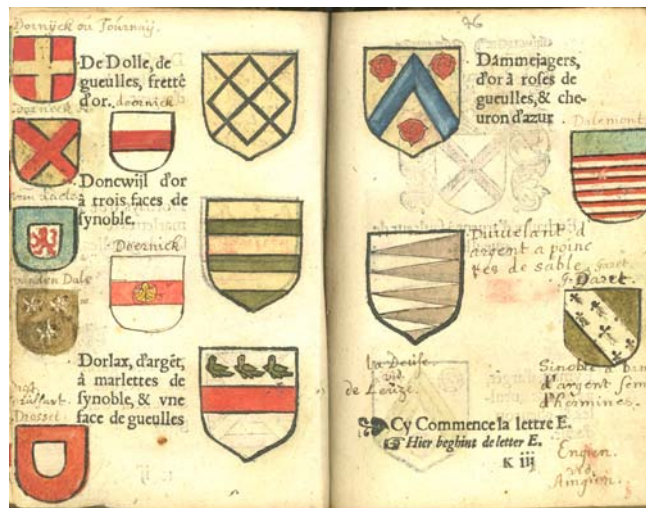 Dornijck ou Tournaij.
De Dolle, de
gueulles, fretté
d'or.
doornick
Doncwijl d'or
à trois faces de
synoble.
Doernick
vanden Dale
Dorlax, d'argēt,
à marlettes de
synoble, & vne
face de gueulles
76
Dammejagers,
d'or à roses de
gueulles, & che-
uron d'azur
Dalemont
Duidelant d
argent a poinc
tes de sable
Daret
Sinoble a
d'argent sem
d'hermines.
la Deuse
vid.
de Leuze.
Cy Commence la lettre E.
Hier beghint de letter E.
K iij
Engien
vid
Aingien.